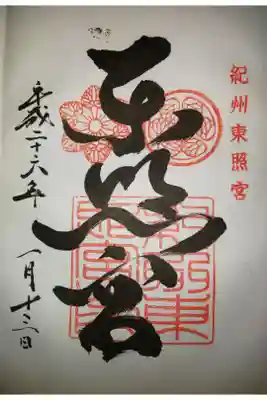 紀州東照宮
東照宮
平成二十六年
一月十三日